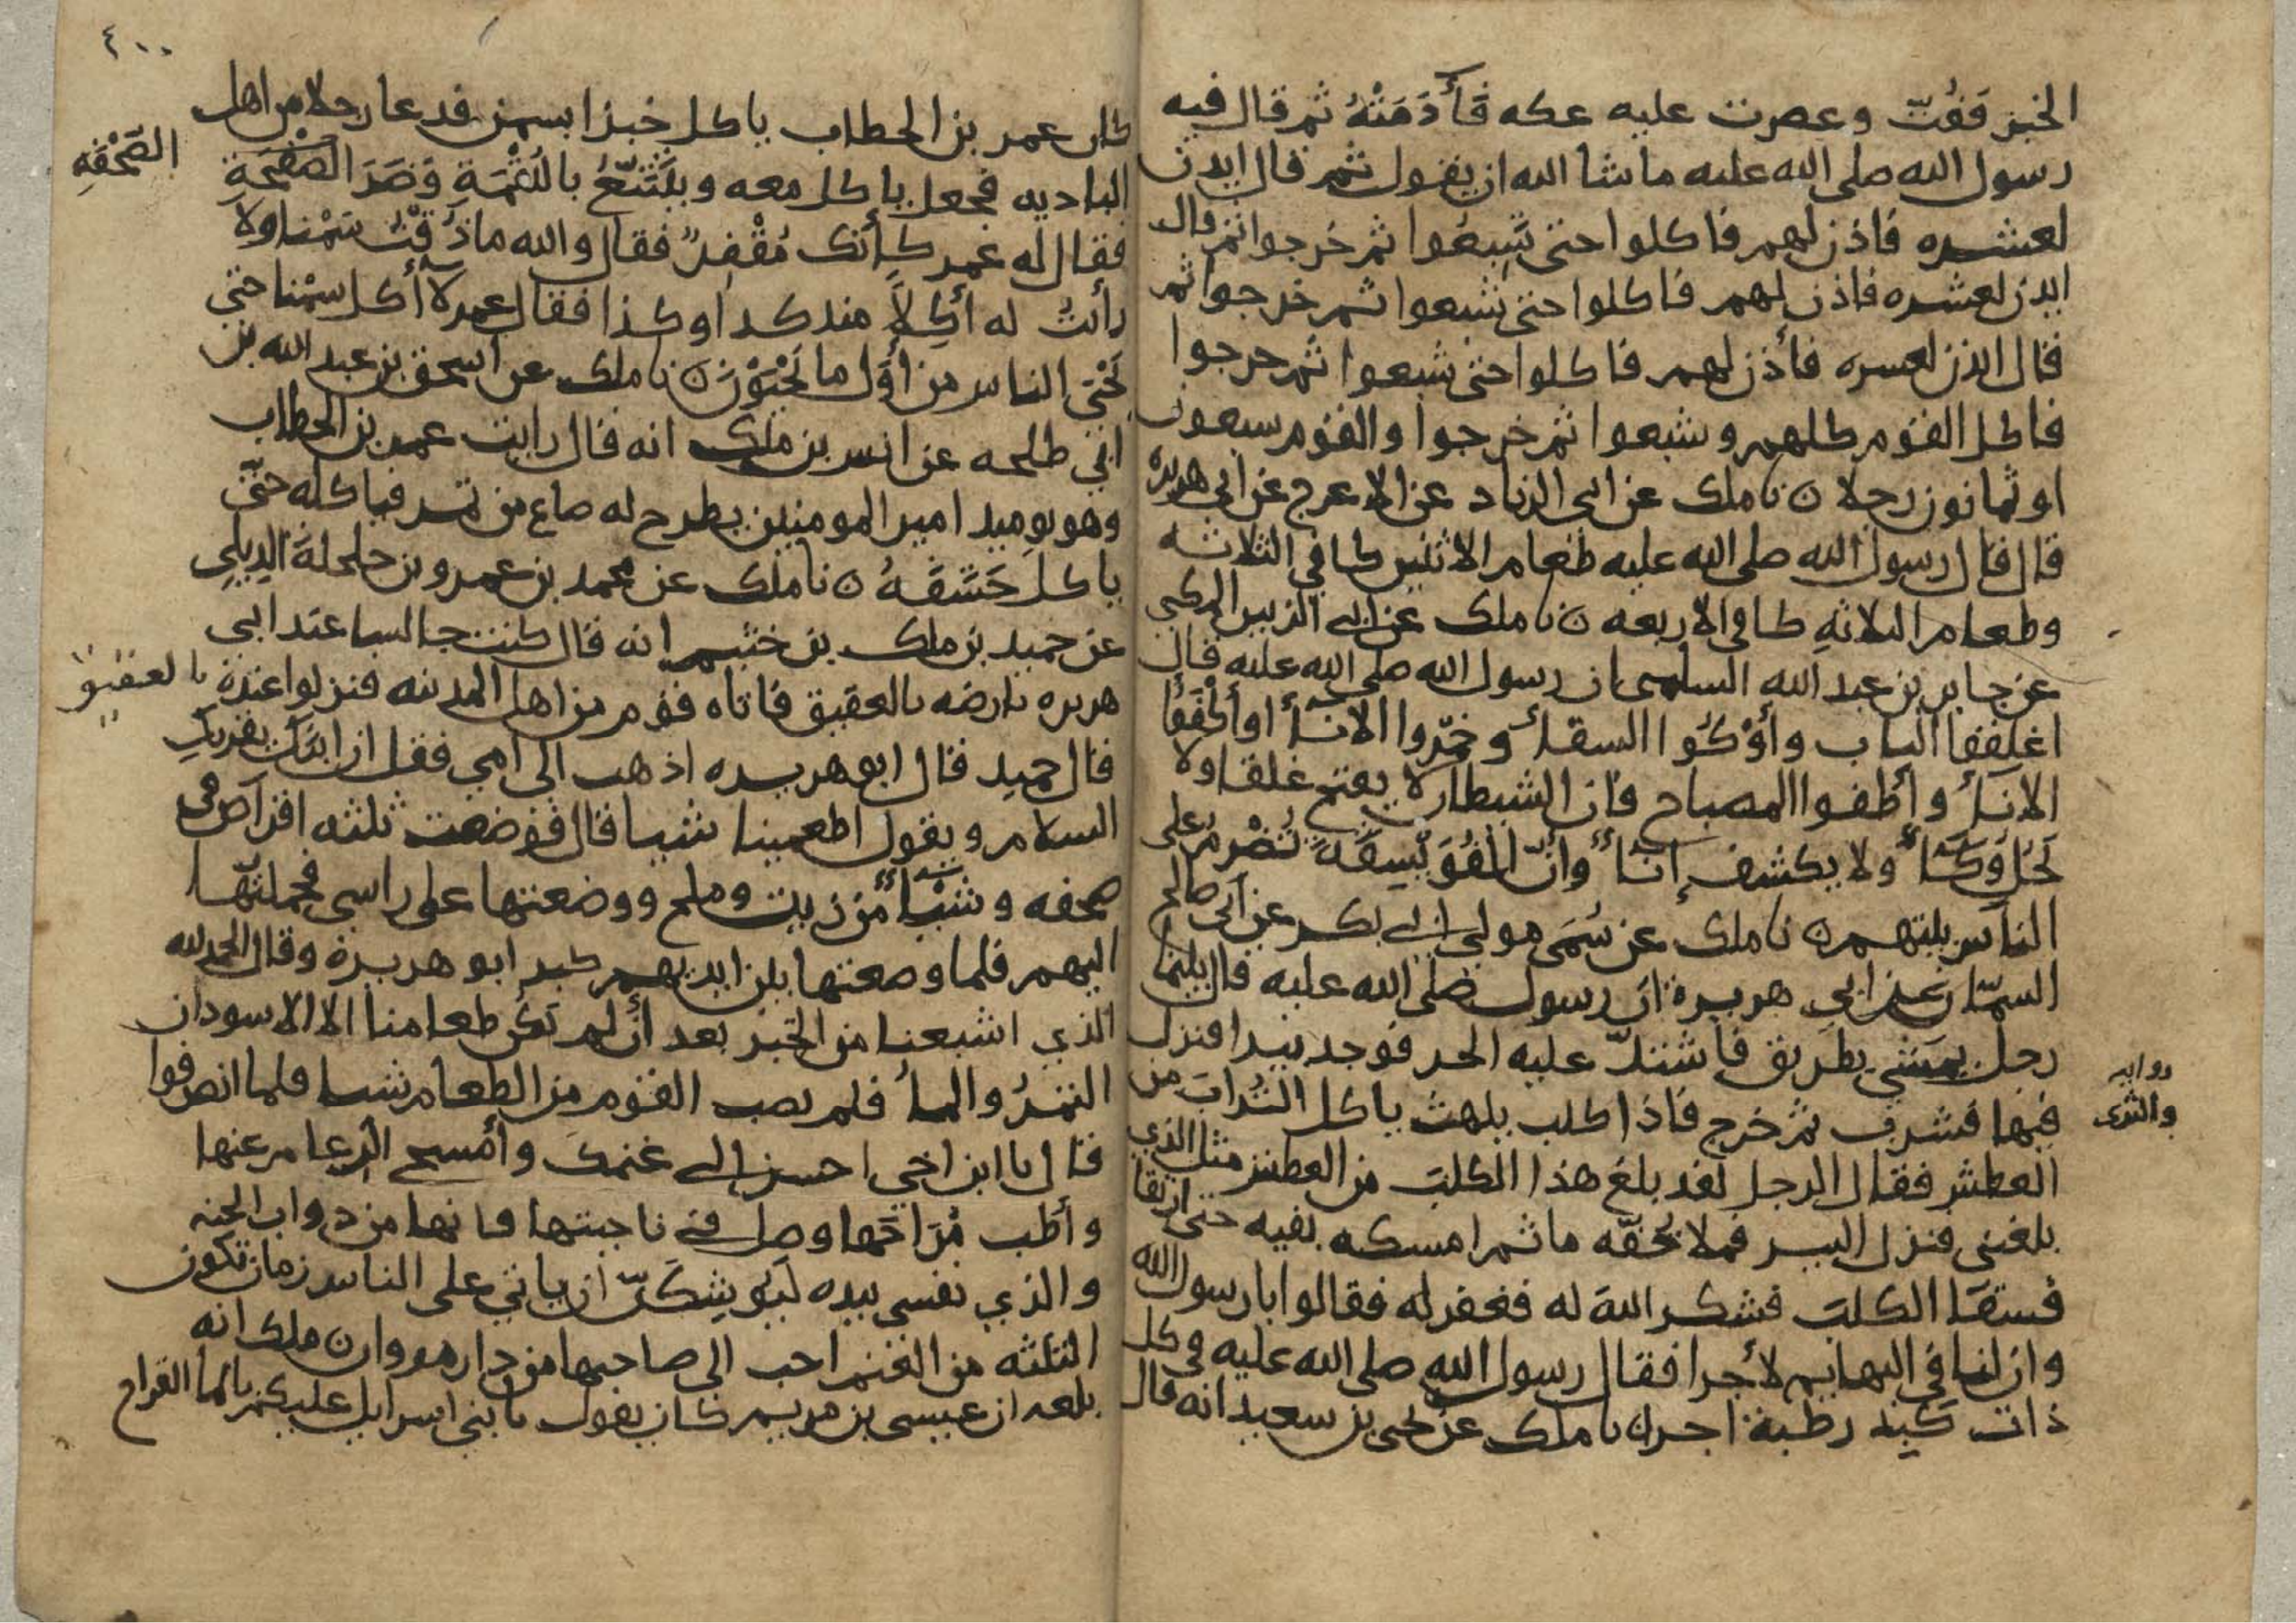 الخبز فَفُتّ وعصرت عليه عكه فَأَدَمَتْهُ ثم قال فيه
رسول الله صلى الله عليه ما شا الله ان يقول ثم قال ايذن
لعشره فاذن لهم فاكلوا حتى شَبِعُوا ثم خرجوا ثم قال
ايذن لعشره فاذن لهم فاكلوا حتى شبعوا ثم خرجوا ثم
قال ايذن لعسره فأذن لهم فاكلوا حتى شبعوا ثم خرجوا
فاكل القوم كلهم وشبعوا ثم خرجوا والقوم سبعون
او ثمانون رجلا ن نا ملك عن ابي الزناد عن الاعرج عن ابي هريره
قال قال رسول الله صلى الله عليه طعام الاثنين كافي الثلاثه
وطعام الثلاثةِ كافي الاربعه ن نا ملك عن ابي الزبير المكي
عن جابر بن عبد الله السلمي ان رسول الله صلى الله عليه قال
اغلقوا الباب وأوْكُوا السقاء وخمّروا الاناء او أكْفَئُوا
الاناء وأطفوا المصباح فان الشيطان لا يفتح غلقا ولا
يَحُل وَكَاءً ولا يكشف إناءً وانّ الفُوَيْسِقَةَ تُضْرِمُ على
الناس بيتهم ن نا ملك عن سُمَى مولى ابي بكر عن ابي صالح
السمّان عن ابي هريرة ان رسول صلى الله عليه قال بينما
رجل يمشي بطريق فاشتدّ عليه الحر فوجد بيرا فنزل
فيها فشرب ثم خرج فاذا كلب يلهث ياكل التُرابَ من
روايه
والثرى
العطش فقال الرجل لقد بلغ هذا الكلبَ من العطش مثل الذي
بلغني فنزل البير فملا خُفّه ما ثم امسكه بفيه حتى ارتقا
فسقا الكلبَ فشكر اللهَ له فغفر له فقالوا يا رسول الله
وان لنا في البهايم لأجرا فقال رسول الله صلى الله عليه في كل
ذات كَبِد رطبة اجر ن نا ملك عن يحيى بن سعيد انه قال
٤٠٠
كان عمر بن الخطاب ياكل خبزا بسمن فدعا رجلا من اهل
الباديه فجعل ياكل معه ويَتَتَبَّعُ باللقْمَةِ وَضَرَ الصَّفْحَةِ
الصَّحْفَهِ
فقال له عمر كأنك مُقْفِرٌ فقال والله ما ذُقْتُ سَمْنا ولا
رأيتُ له أكِلاً منذ كذا وكذا فقال عمر لا أكل سمْنا حتى
يَحْيَى الناس من أوَّل ما يَحْيَوْنَ ن نا ملك عن اسحق بن عبد الله بن
ابي طلحه عن انس بن ملك انه قال رايت عمر بن الخطاب
وهو يوميذ امير المومنين يطرح له صاع من تمر فياكله حتّى
ياكل حَشَفَهُ ن نا ملك عن محمد بن عمرو بن حلحلةَ الدِيلِي
عن حميد بن ملك بن خثيم انه قال كنت جالسا عند ابي
هريره بارضه بالعقيق فاتاه قوم من اهل المدينه فنزلوا عنده
بالعقيق
قال حميد قال ابو هريره اذهب الى امي فقل ان ابنَك يقريكِ
السلام ويقول اطعمينا شيا قال فوضعت ثلثه اقراص في
صحفه وشيْاءً من زيت وملح ووضعتها على راسي فحملتُها
اليهم فلما وضعتها بين ايديهم كبر ابو هريرة وقال الحمد لله
الذي اشبعنا من الخبز بعد أن لم تكُن طعامنا الا الاسودان
التمرُ والماءُ فلم يصب القوم من الطعام شيا فلما انصرفوا
قال يا ابن اخي احسن الى غنمك وأمْسح الرعام عنها
وأطب مُرَاحَها وصل في ناحيتها فانها من دواب الجنه
والذي نفسي بيده ليُوشِكَنّ ان ياتي على الناس زمان تكون
الثلثه من الغنم احب الى صاحبها من دار مروان ملك انه
بلغه ان عيسى بن مريم كان يقول يا بني اسرايل عليكم بالما القراح